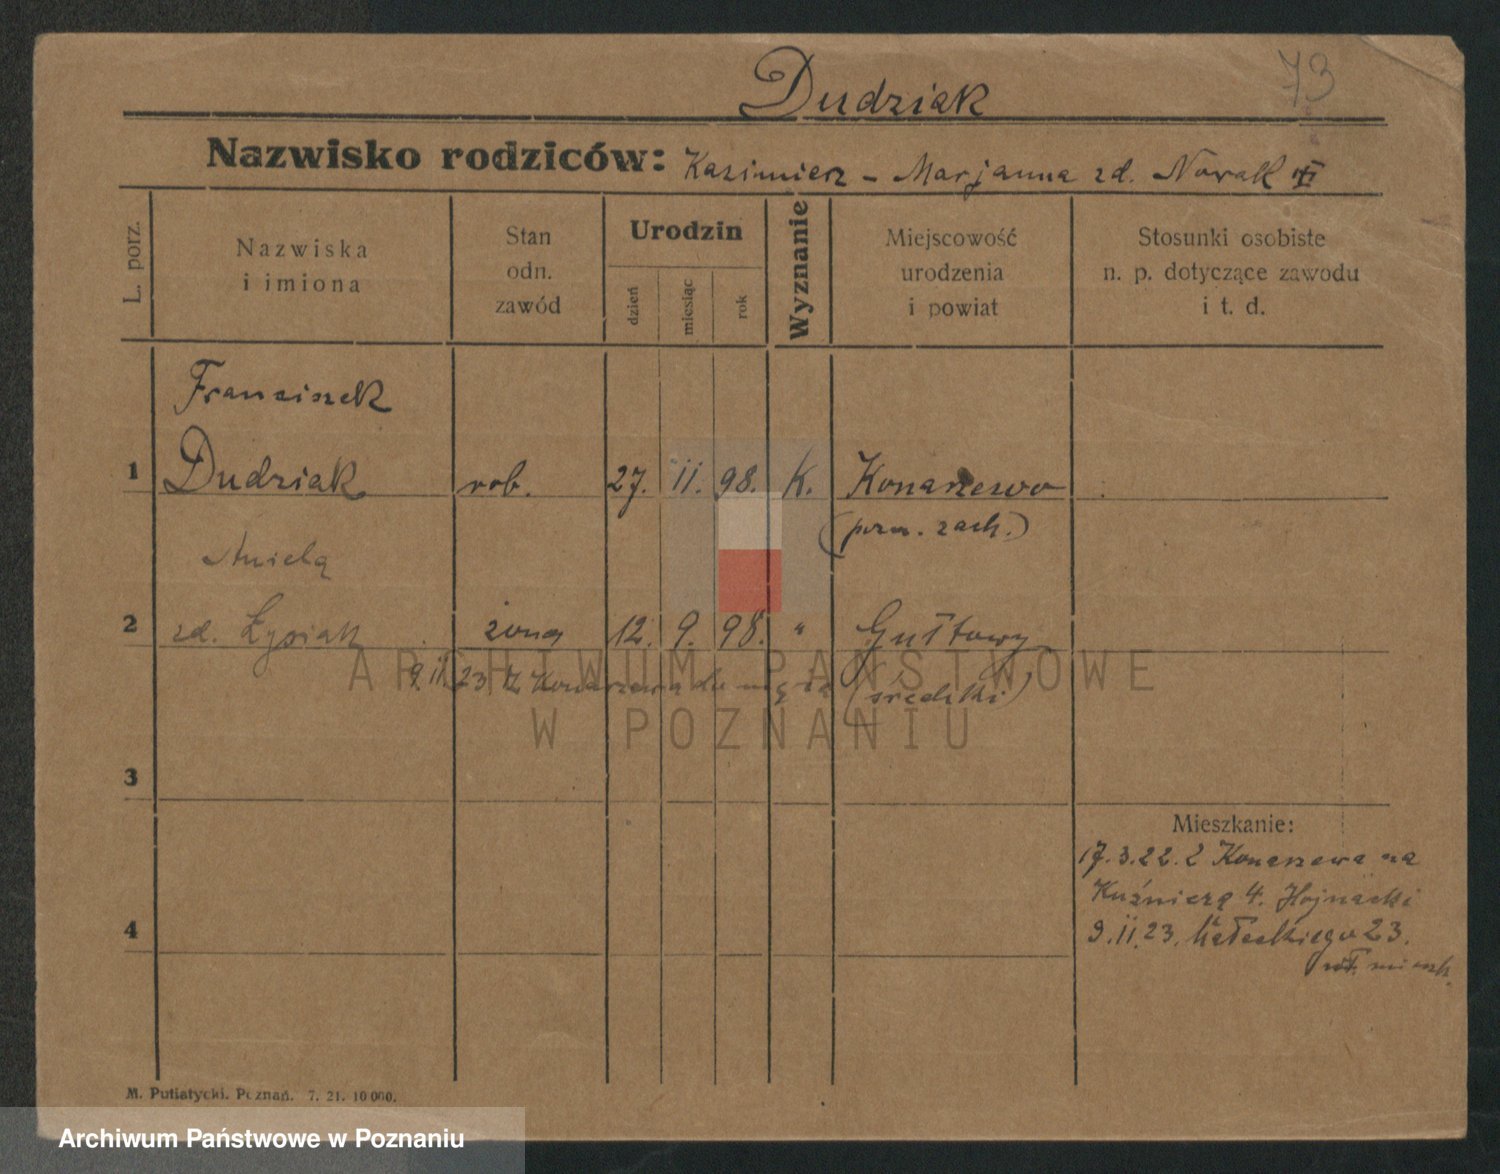 73
Dudziak
Nazwisko rodziców: Kazimierz – Marjanna zd. Nowak
L. porz.
Nazwiska
i imiona
Stan
odn.
zawód
Urodzin
dzień
miesiąc
rok
Wyznanie
Miejscowość
urodzenia
i powiat
Stosunki osobiste
n. p. dotyczące zawodu
i t. d.
Franciszek
1 Dudziak rob. 27. 11. 98. K. Konarzewo
(pozn. zach.)
Anielą
2 zd. Łysiak żoną 12. 9. 98. " Gułtowy
9.11.23 z Konarzewa do męża (średzki)
3
Mieszkanie:
17.3.22. z Konarzewa na
Kuźniczą 4. Hojnacki
4 9.11.23. Małeckiego 23.
wł. mieszk.
M. Putiatycki. Poznań. 7. 21. 10 000.
ARCHIWUM PAŃSTWOWE
W POZNANIU
Archiwum Państwowe w Poznaniu